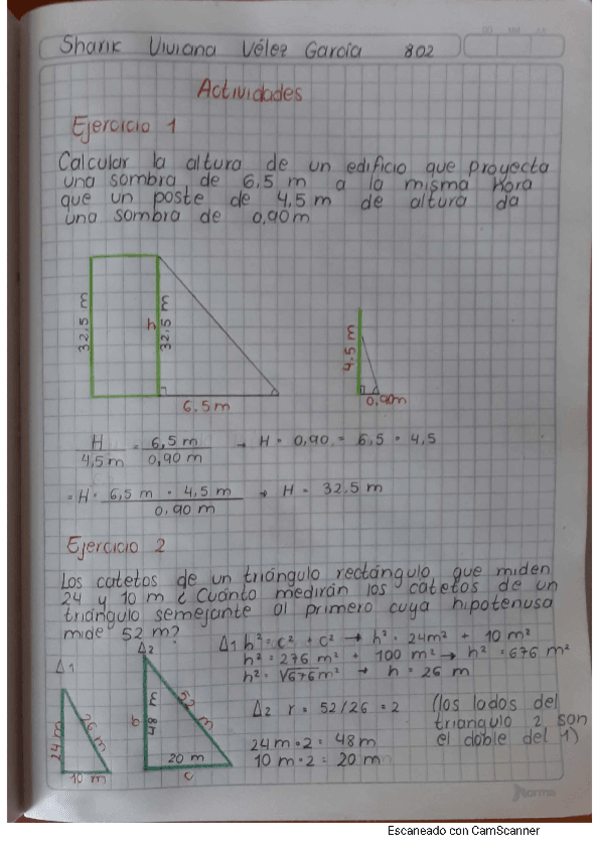 Sharik Viviana Vélez García 802
Actividades
Ejercicio 1
Calcular la altura de un edificio que proyecta
una sombra de 6,5 m a la misma Hora
que un poste de 4,5 m de altura da
una sombra de 0,90m
32,5 m
h
32,5 m
6.5m
4,5 m
0,90m
H/4,5m = 6,5 m/0,90 m → H · 0,90 = 6,5 · 4,5
= H · 6,5 m · 4,5 m/0,90 m → H = 32.5 m
Ejercicio 2
Los catetos de un triángulo rectángulo que miden
24 y 10 m ¿Cuánto medirán los catetos de un
triángulo semejante al primero cuya hipotenusa
mide 52 m?
Δ1 h² = c² + c² → h² · 24m² + 10 m²
h² = 276 m² + 100 m² → h² = 676 m²
h² = √676 m² → h = 26 m
Δ1
24 m
26 m
10 m
Δ2
b
48 m
52 m
20 m
c
Δ2 r = 52/26 = 2 (los lados del
triangulo 2 son
el doble del 1)
24m · 2 = 48m
10m · 2 = 20 m
norma
Escaneado con CamScanner